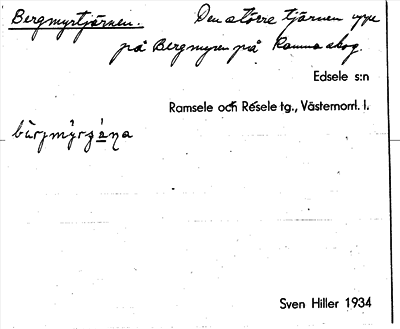 Bergmyrtjärnen. Den större tjärnen uppe
på Bergmyren på Ramna skog.
Edsele s:n
Ramsele och Resele tg., Västernorrl. l.
Sven Hiller 1934